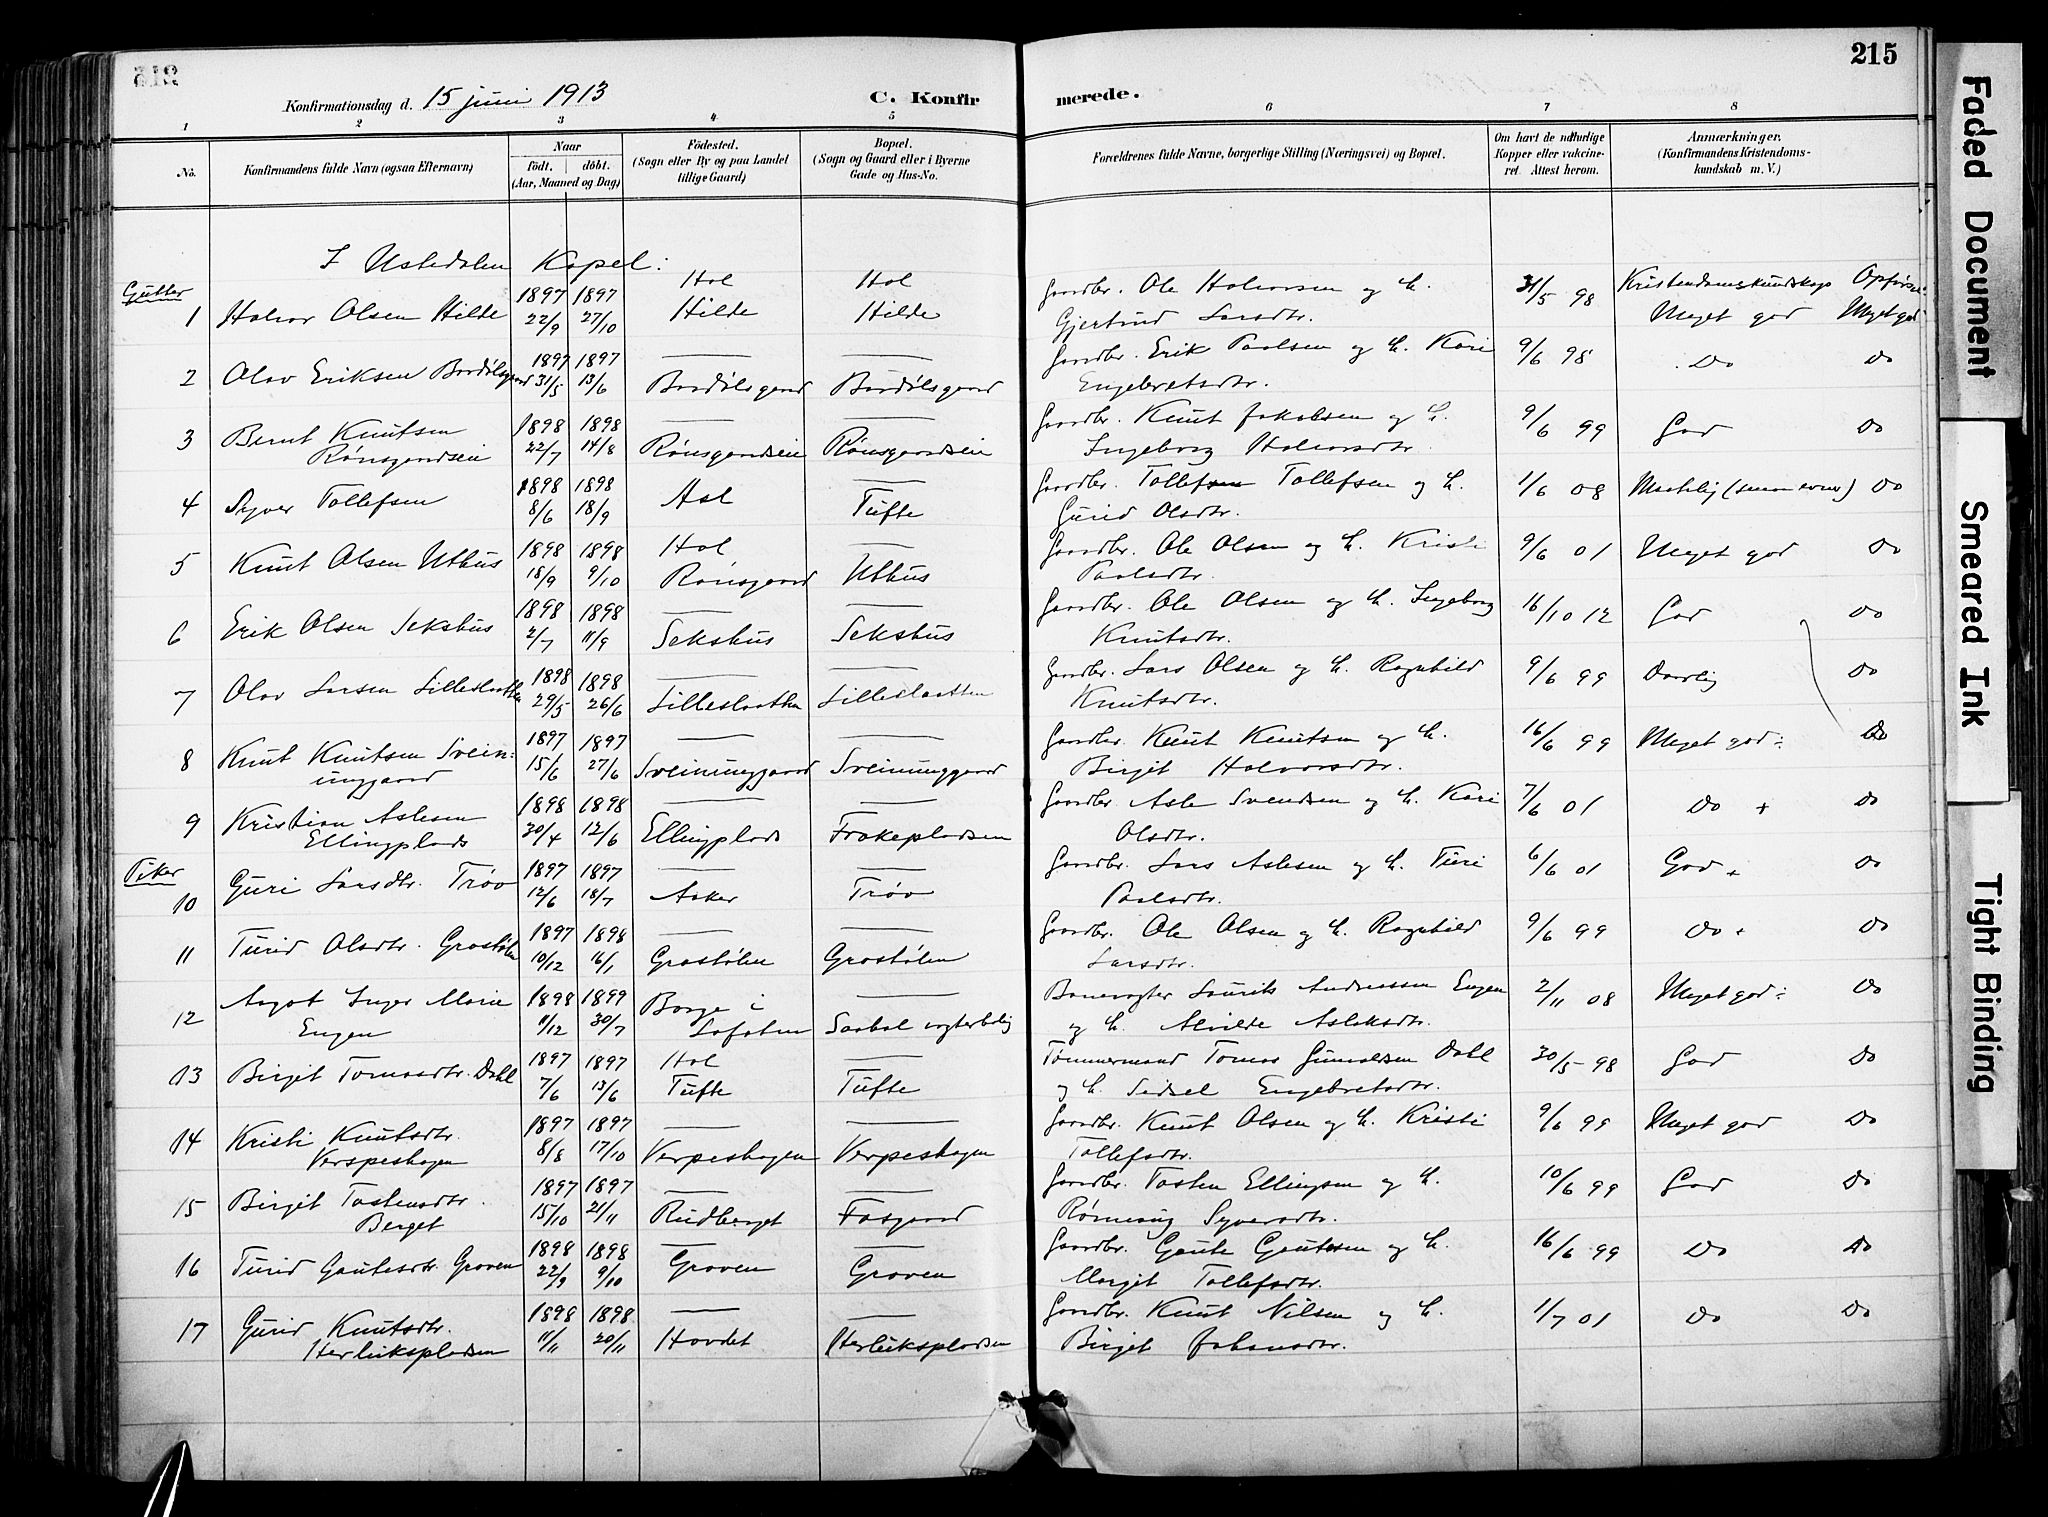 215
Konfirmationsdag d. 15 juni 1913
C. Konfirmerede.
1 2 3 4 5 6 7 8
No.
Konfirmandens fulde Navn (ogsaa Efternavn)
Naar
født. døbt.
(Aar, Maaned og Dag)
Fødested.
(Sogn eller By og paa Landet
tillige Gaard)
Bopæl.
(Sogn og Gaard eller i Byerne
Gade og Hus-No.
Forældrenes fulde Navne, borgerlige Stilling (Næringsvei) og Bopæl.
Om havt de naturlige
Kopper eller vakcineret. Attest herom.
Anmærkninger.
(Konfirmandens Kristendoms-
kundskab m. V.)
I Ustedalen Kapel:
Gutter
Kristendomskundskap
1 Halvor Olsen Hilde 1897 22/9 1897 27/10 Hol Hilde Hol Hilde Gaardbr. Ole Halvorsen og h. Gjertrud Larsdtr. 31/5 98 Meget god Meget god
2 Olav Eriksen Bardølsgaard 1897 31/5 1897 13/6 — Bardølsgaard — Bardølsgaard Gaardbr. Erik Paalsen og h. Kari Engebretsdtr. 9/6 98 Do Do
3 Bernt Knutsen Rønsgardseie 1898 22/7 1898 14/8 — Rønsgardseie — Rønsgardseie Gaardbr. Knut Jakobsen og h. Ingeborg Halvorsdtr. 9/6 99 God Do
4 Syver Tollefsen 1898 8/6 1898 18/9 Aal — Tufte Gaardbr. Tollef Tollefsen og h. Gurid Olsdtr. 1/6 08 Maatelig Do
5 Knut Olsen Uthus 1898 18/9 1898 9/10 Hol Rønsgaard — Uthus Gaardbr. Ole Olsen og h. Kristi Paalsdtr. 9/6 01 Meget god Do
6 Erik Olsen Sekshus 1898 2/7 1898 11/9 — Sekshus — Sekshus Gaardbr. Ole Olsen og h. Ingeborg Knutsdtr. 16/10 12 God Do
7 Olav Larsen Lilleslaatten 1898 29/5 1898 26/6 — Lilleslaatten — Lilleslaatten Gaardbr. Lars Olsen og h. Ragnhild Knutsdtr. 9/6 99 Daarlig Do
8 Knut Knutsen Sveinunggaard 1897 15/6 1897 27/6 — Sveinunggaard — Sveinunggaard Gaardbr. Knut Knutsen og h. Birgit Halvorsdtr. 16/6 99 Meget god÷ Do
9 Kristian Aslesen Ellingplads 1898 30/4 1898 12/6 — Ellingplads — Frakepladsen Gaardbr. Asle Svendsen og h. Kari Olsdtr. 7/6 01 Do + Do
Piker
10 Guri Larsdtr. Trøo 1897 12/6 1897 18/7 — Aaker — Trøo Gaardbr. Lars Aslesen og h. Turi Paalsdtr. 6/6 01 God + Do
11 Turid Olsdtr. Grostølen 1897 10/12 1898 16/1 — Grostølen — Grostølen Gaardbr. Ole Olsen og h. Ragnhild Larsdtr. 9/6 99 Do + Do
12 Aagot Inger Marie Engen 1898 11/12 1899 30/7 Borge i Lofoten — vogterbolig Banevogter Laurits Andreassen Engen og h. Alvilde Aslaksdtr. 2/11 08 Meget god÷ Do
13 Birgit Tomasdtr. Dahl 1897 7/6 1897 13/6 Hol Tufte — Tufte Tømmermand Tomas Gunvaldsen Dahl og h. Sidsel Engebretsdtr. 30/5 98 God Do
14 Kristi Knutsdtr. Verspeshagen 1897 8/8 1897 17/10 — Verpeshagen — Verpeshagen Gaardbr. Knut Olsen og h. Kristi Tollefsdtr. 9/6 99 Meget god Do
15 Birgit Tostensdtr. Berget 1897 15/10 1897 21/11 — Rudberget — Fosgaard Gaardbr. Tosten Ellingsen og h. Rønnaug Syversdtr. 10/6 99 God Do
16 Turid Gautesdtr. Groven 1898 22/9 1898 9/10 — Groven — Groven Gaardbr. Gaute Gautesen og h. Margit Tollefsdtr. 16/6 99 Do Do
17 Gurid Knutsdtr. Herleikspladsen 1898 11/11 1898 20/11 — Hovdet — Herleikspladsen Gaardbr. Knut Nilsen og h. Birgit Johansdtr. 1/7 01 Do Do
Faded Document
Smeared Ink
Tight Binding